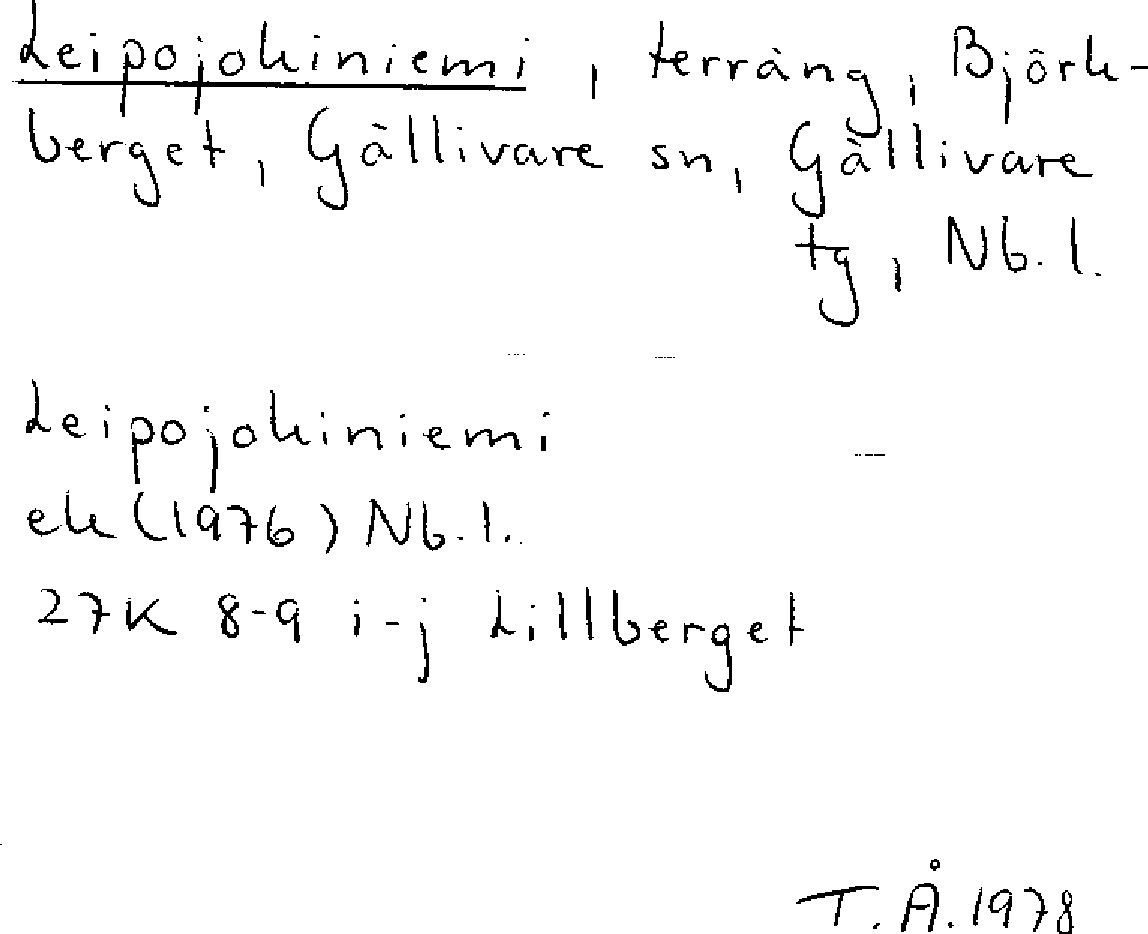 Leipojokiniemi, terräng, Björk-
berget, Gällivare sn, Gällivare
tg, Nb. l.
Leipojokiniemi
ek (1976) Nb. l.
27K 8-9 i-j Lillberget
T. Å. 1978